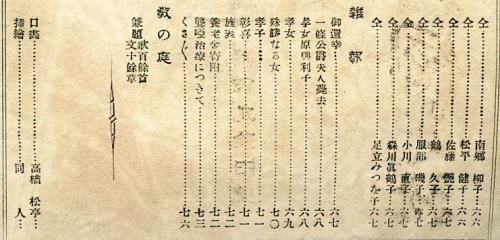 仝 南郷 柳子 六六
仝 松平 健子 六六
仝 佐藤 艶子 六六
仝 鶴 久子 六七
仝 服部 磯子 六七
仝 小川 直子 六七
仝 森川眞鶴子 六七
仝 足立みつを子 六七
雜報
御還幸 六七
一條公爵夫人薨去 六八
孝女原興利子 六八
孝女 六九
殊勝なる女 七〇
孝子 七一
彰喜 七一
施火 七二
養老金寄附 七二
聾啞治療につきて 七三
くさ〴〵 七六
教の庭
兼題獻百餘首
文十餘章
口畫 高橋 松亭
挿繪 同 人